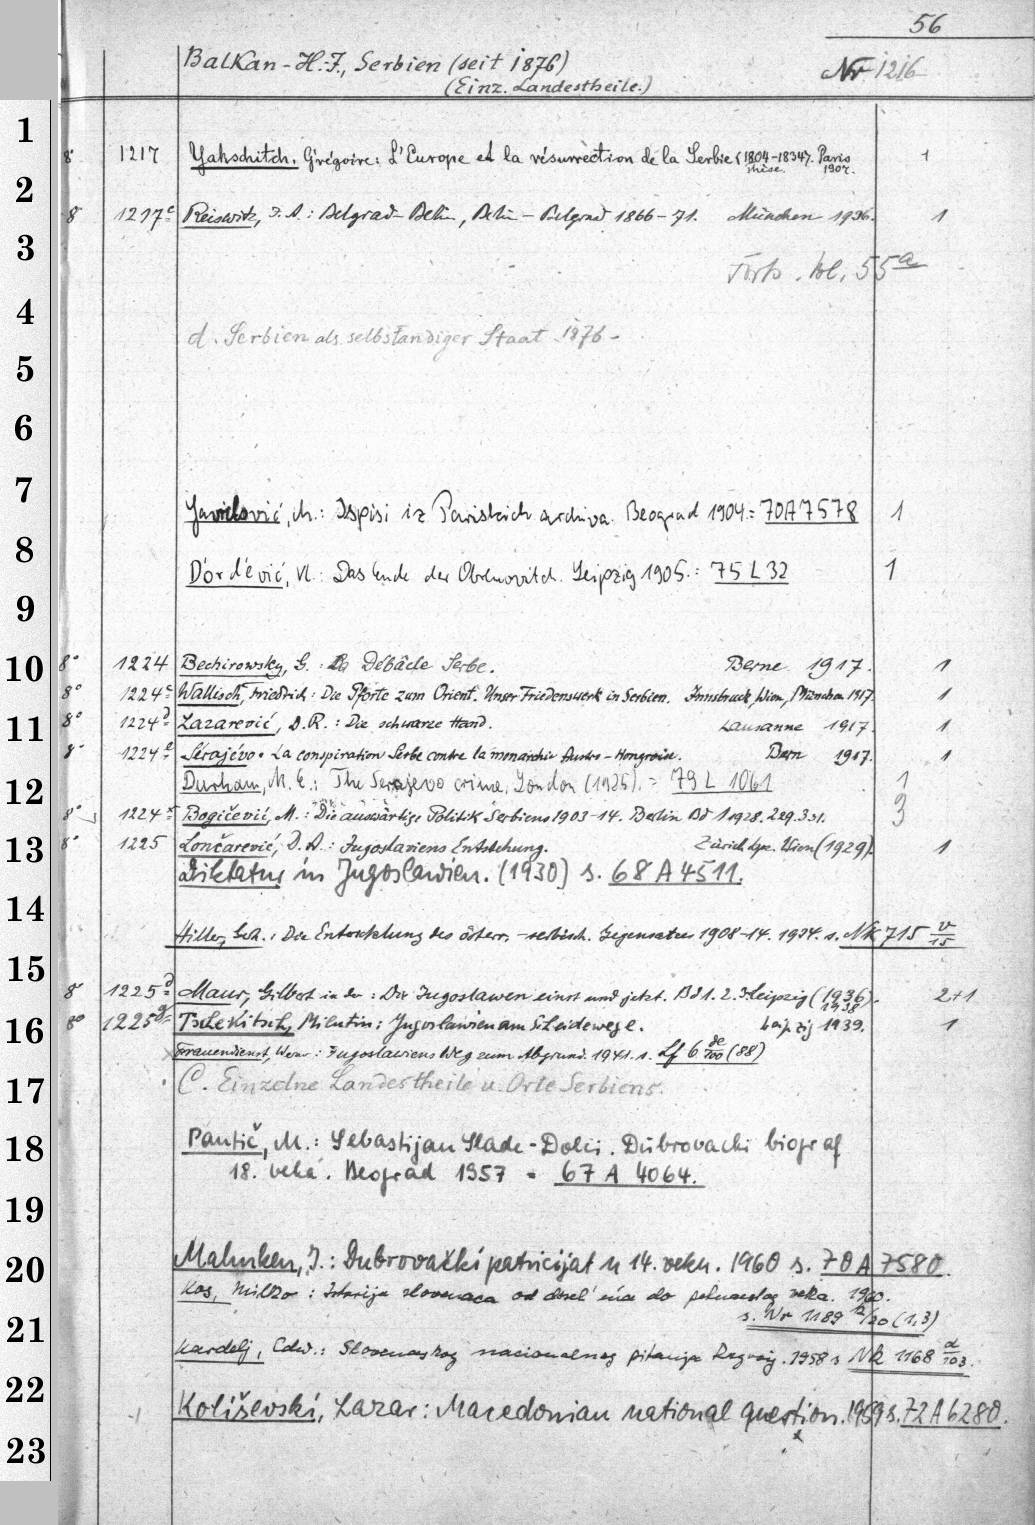 56
Balkan-H.-J., Serbien (seit 1876) Nr 1216
(Einz. Landestheile.)
1
8° 1217 Yakschitch, Grégoire: L'Europe et la résurrection de la Serbie (1804-1834). Paris 1
thèse. 1907.
2
8° 1217c Reiswitz, J. A.: Belgrad-Berlin, Berlin-Belgrad 1866-71. München 1936. 1
3
Forts. bl. 55a
4
d. Serbien als selbständiger Staat 1876-
5
6
7
Gavrilović, M.: Ispisi iz Pariskich archiva. Beograd 1904 = 70A7578 1
8
Dorđević, Vl.: Das Ende der Obrenovitch. Leipzig 1905.: 75 L 32 1
9
10 8° 1224 Bechirowsky, G.: La Débâcle Serbe. Berne 1917. 1
8° 1224c Wallisch, Friedrich: Die Pforte zum Orient. Unser Friedenswerk in Serbien. Innsbruck, Wien, München 1917. 1
11 8° 1224d Lazarević, D.R.: Die schwarze Hand. Lausanne 1917. 1
8° 1224e Sérajévo. La conspiration Serbe contre la monarchie Austro-Hongroise. Bern 1917. 1
12 Durham, M. E.: The Serajevo crime, London (1925). = 79 L 1061 1
8° 1224x Bogičević, M.: Die auswärtige Politik Serbiens 1903-14. Berlin Bd 1 1928. 2 29. 3 31. 3
13 8° 1225 Lončarević, D. A.: Jugoslaviens Entstehung. Zürich Lpz. Wien (1929). 1
Diktatur in Jugoslawien. (1930) s. 68 A 4511.
14
Hiller, Ger.: Die Entwicklung des österr.-serbisch. Gegensatzes 1908-14. 1934. s. Nk 715 v/15
15
8° 1225d Maur, Gilbert in der: Die Jugoslawen einst und jetzt. Bd 1. 2. 3 Leipzig (1936). 2+1
1938
16 8° 1225g Tschekitsch, Milutin: Jugoslawien am Scheidewege. Leipzig 1939. 1
Frauendienst, Wern.: Jugoslaviens Weg zum Abgrund. 1941. s. Lf 6 de/700 (88)
17 C. Einzelne Landestheile u. Orte Serbiens.
18 Pantić, M.: Sebastijan Slade-Dolci. Dubrovacki biograf
18. veka. Beograd 1957 = 67 A 4064.
19
20 Mahnken, I.: Dubrovački patricijat u 14. veku. 1960 s. 70 A 7580.
Kos, Milko: Istorija slovenaca od doseljenja do petnaestog veka. 1960.
21 s. Nr 1189 12/20 (1,3)
Kardelj, Edw.: Slovenaskog nacionalnog pitanja Razvoj. 1958 s Nk 1168 d/103.
22 Koliševski, Lazar: Macedonian national question. 1959 s. 72 A 6280.
23